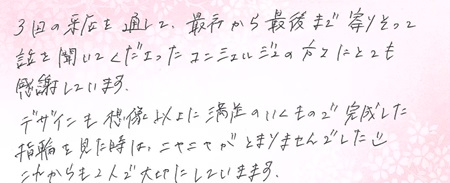 3回の来店を通して、最初から最後まで寄りそって
話を聞いてくださったコンシェルジュの方々にとても
感謝しています。
デザインも想像以上に満足のいくもので完成した
指輪を見た時は、ニヤニヤがとまりませんでした
これからも2人で大切にしていきます。